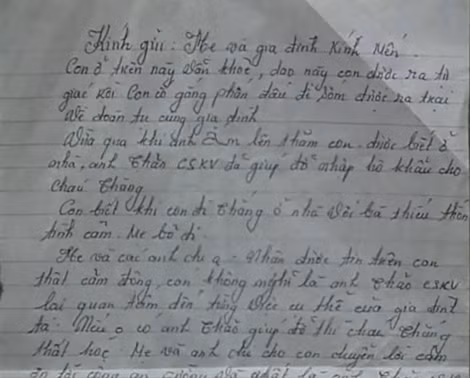 Kính gửi: Mẹ và gia đình kính mến.
Con ở trên này vẫn khoẻ, dạo này con được ra tự
giác rồi Con cố gắng phấn đấu đi sớm được ra trại
về đoàn tụ cùng gia đình
Vừa qua khi anh Ẩm lên thăm con được biết ở
nhà, anh Thảo CSKV đã giúp đỡ nhập hộ khẩu cho
cháu Thắng
Con biết khi con đi Thắng ở nhà với bà thiếu thốn
tình cảm. Mẹ bỏ đi
Mẹ và các anh chị ạ - Nhận được tin trên con
thật cảm động, con không nghĩ là anh Thảo CSKV
lại quan tâm đến từng việc cụ thể của gia đình
ta. Nếu o có anh Thảo giúp đỡ thì cháu Thắng
thất học. Mẹ và anh chị cho con chuyển lời cảm
ơn tới công an